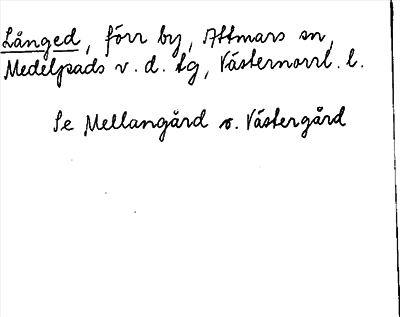 Långed, förr by, Attmars sn,
Medelpads v. d. tg, Västernorrl. l.
Se Mellangård o. Västergård